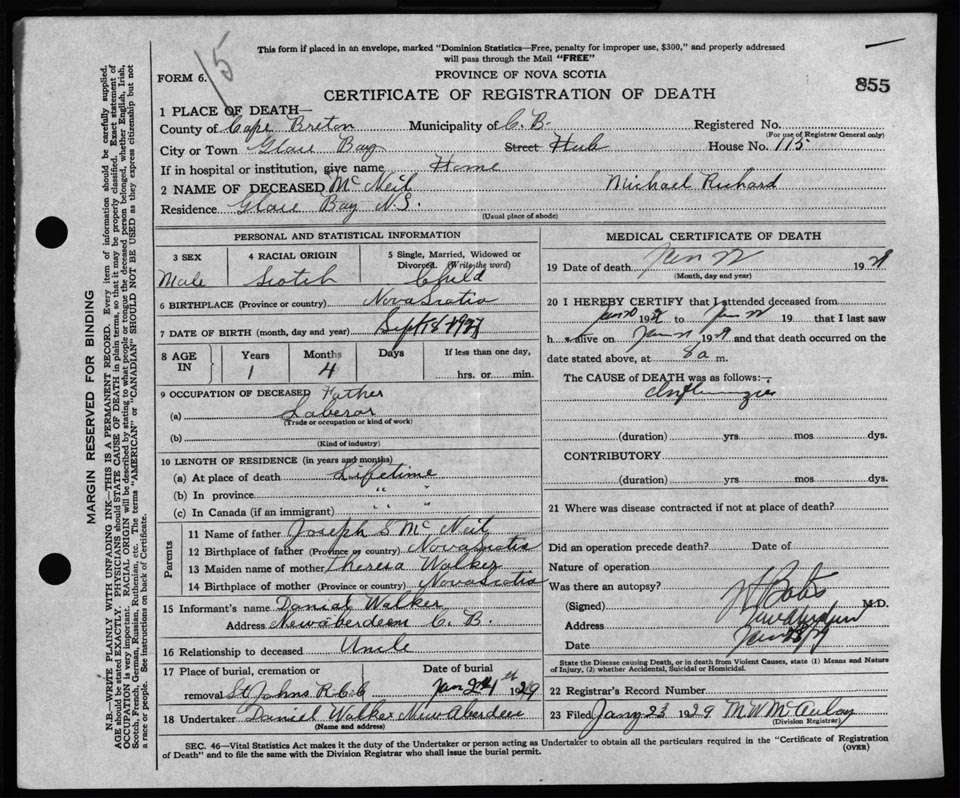 This form if placed in an envelope, marked "Dominion Statistics—Free, penalty for improper use, $300," and properly addressed
will pass through the Mail "FREE"
15
FORM 6.
PROVINCE OF NOVA SCOTIA
855
CERTIFICATE OF REGISTRATION OF DEATH
1 PLACE OF DEATH—
County of Cape Breton Municipality of C. B. Registered No.
(For use of Registrar General only)
City or Town Glace Bay Street Hub House No. 115
If in hospital or institution, give name Home
2 NAME OF DECEASED McNeil Michael Richard
Residence Glace Bay N.S.
(Usual place of abode)
PERSONAL AND STATISTICAL INFORMATION
3 SEX 4 RACIAL ORIGIN 5 Single, Married, Widowed or Divorced (Write the word)
Male Scotch Child
6 BIRTHPLACE (Province or country) Nova Scotia
7 DATE OF BIRTH (month, day and year) Sept 18 1927
8 AGE IN Years Months Days If less than one day,
1 4 hrs. or min.
9 OCCUPATION OF DECEASED Father
(a) Laberor
(Trade or occupation or kind of work)
(b)
(Kind of industry)
10 LENGTH OF RESIDENCE (in years and months)
(a) At place of death Lifetime
(b) In province " "
(c) In Canada (if an immigrant) " " "
Parents
11 Name of father Joseph S McNeil
12 Birthplace of father (Province or country) Nova Scotia
13 Maiden name of mother Theresa Walker
14 Birthplace of mother (Province or country) Nova Scotia
15 Informant's name Danial Walker
Address Newaberdeen C. B.
16 Relationship to deceased Uncle
17 Place of burial, cremation or Date of burial
removal St Johns R.C.C Jan 24th 1929
18 Undertaker Daniel Walker New Aberdeen
(Name and address)
MEDICAL CERTIFICATE OF DEATH
19 Date of death Jan 22 1929
(Month, day and year)
20 I HEREBY CERTIFY that I attended deceased from
Jan 20 1929 to Jan 22 19 that I last saw
h alive on Jan 21 1929 and that death occurred on the
date stated above, at 8 a m.
The CAUSE of DEATH was as follows:—
(duration) yrs mos dys.
CONTRIBUTORY
(duration) yrs mos dys.
21 Where was disease contracted if not at place of death?
Did an operation precede death? Date of
Nature of operation
Was there an autopsy?
(Signed) M.D.
Address New Aberdeen
Date Jan 23/29
State the Disease causing Death, or in death from Violent Causes, state (1) Means and Nature
of Injury, (2) whether Accidental, Suicidal or Homicidal.
22 Registrar's Record Number
23 Filed Jany 23 1929 M W McAulay
(Division Registrar)
SEC. 46—Vital Statistics Act makes it the duty of the Undertaker or person acting as Undertaker to obtain all the particulars required in the "Certificate of Registration
of Death" and to file the same with the Division Registrar who shall issue the burial permit.
(OVER)
MARGIN RESERVED FOR BINDING
N.B.—WRITE PLAINLY WITH UNFADING INK—THIS IS A PERMANENT RECORD. Every item of information should be carefully supplied.
AGE should be stated EXACTLY. PHYSICIANS should STATE CAUSE OF DEATH in plain terms, so that it may be properly classified. Exact statement of
OCCUPATION is very important. RACIAL ORIGIN will be described by stating to what people or tongue the deceased person belonged, whether English, Irish,
Scotch, French, German, Russian, Ruthenian, etc. The terms "AMERICAN" or "CANADIAN" SHOULD NOT BE USED as they express citizenship but not
a race or people. See instructions on back of Certificate.